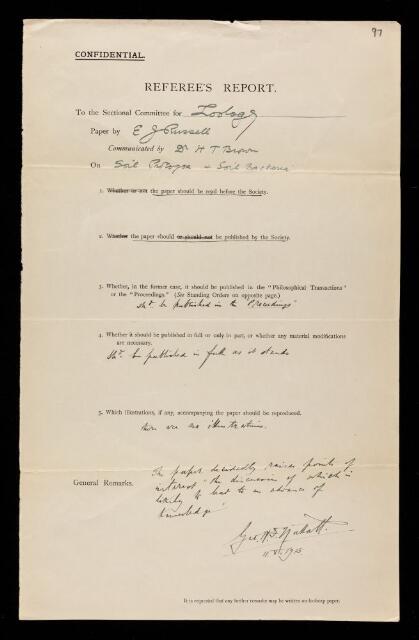 97
CONFIDENTIAL.
REFEREE'S REPORT.
To the Sectional Committee for Zoology
Paper by E J Russell
Communicated by Dr H T Brown
On Soil Protozoa & Soil Bacteria
1. Whether or not the paper should be read before the Society.
2. Whether the paper should or should not be published by the Society.
3. Whether, in the former case, it should be published in the "Philosophical Transactions"
or the "Proceedings." (See Standing Orders on opposite page.)
shd. be published in the "Proceedings"
4. Whether it should be published in full or only in part, or whether any material modifications
are necessary.
shd. be published in full as it stands
5. Which illustrations, if any, accompanying the paper should be reproduced.
there are no illustrations.
General Remarks.
The paper decidedly raises points of
interest the discussion of which is
likely to lead to an advance of
knowledge
Geo. H. F. Nuttall.
1915
It is requested that any further remarks may be written on foolscap paper.